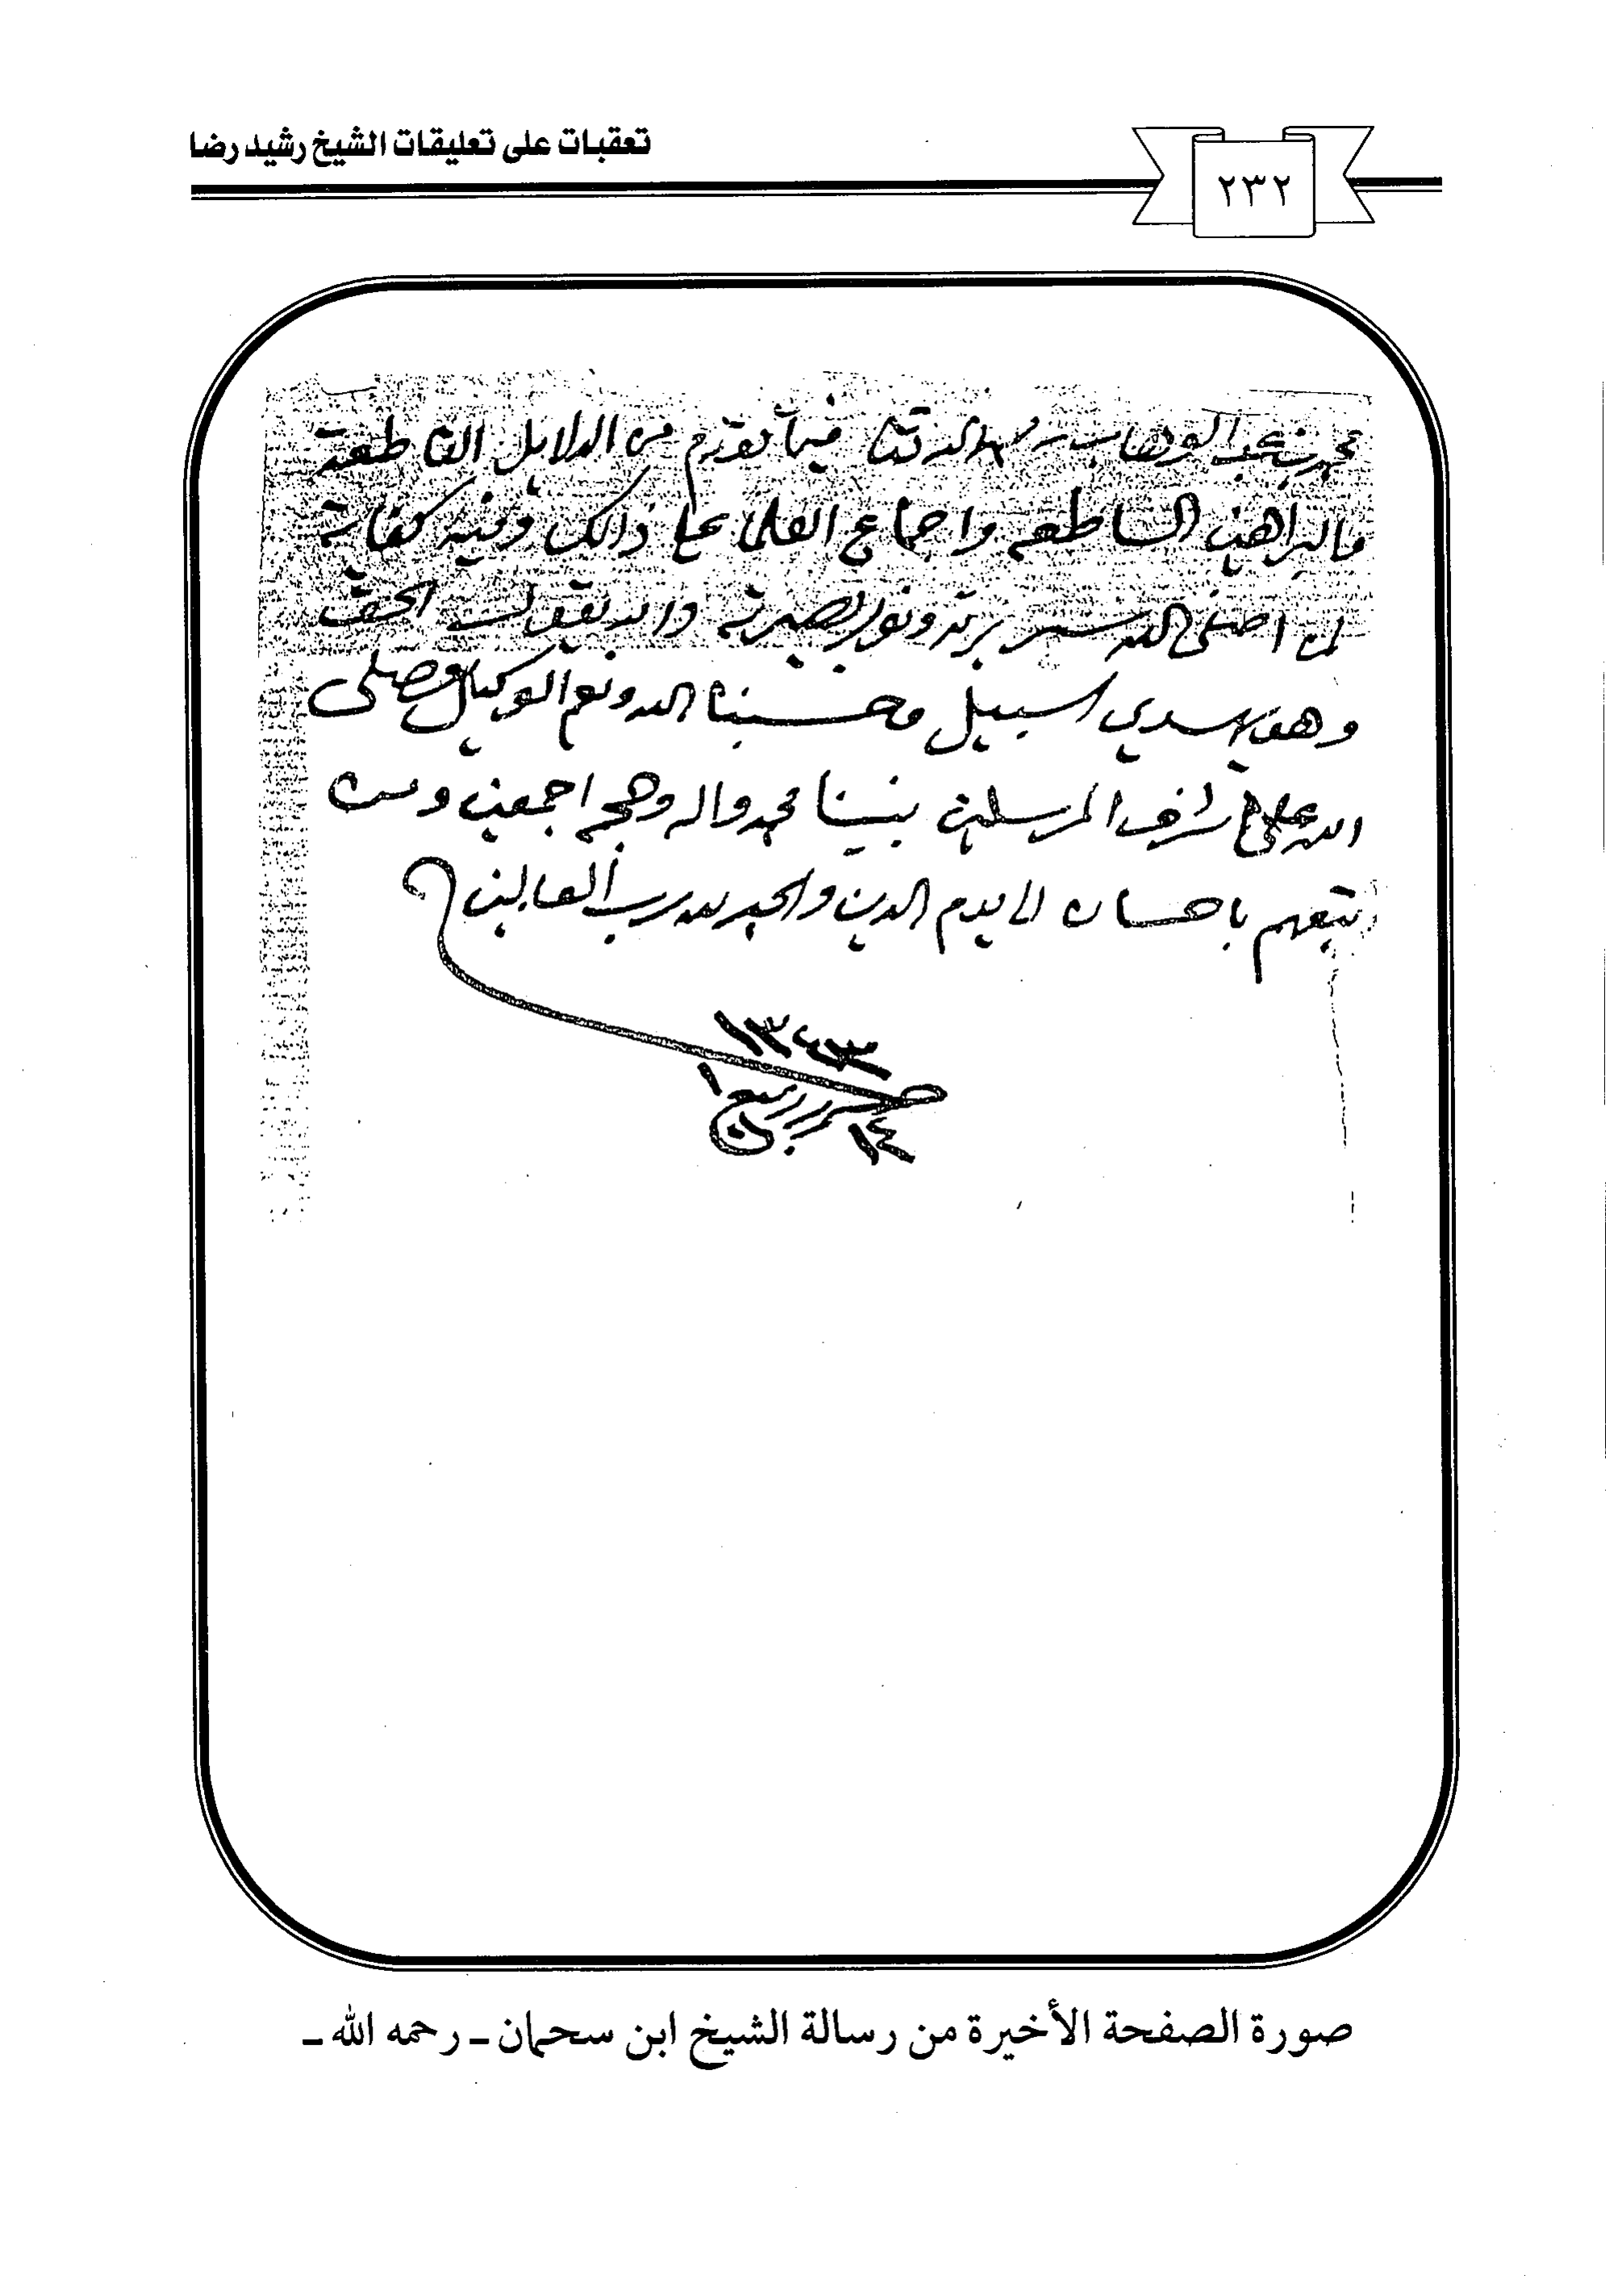 تعقبات على تعليقات الشيخ رشيد رضا
٢٣٢
محمد بن عبد الوهاب رحمه الله تعا فيما تقدم من الدلايل القاطعة
والبراهين الساطعه واجماع العلماء على ذالك وفيه كفاية
لمن اصلح الله سريرته ونور بصيرته والله يقول الحق
وهو يهدي السبيل وحسبنا الله ونعم الوكيل وصلى
الله على اشرف المرسلين نبينا محمد واله وصحبه اجمعين ومن
تبعهم باحسان الى يوم الدين والحمد لله رب العالمين
١٣٤٣
حرر ربيع ١
١٤
صورة الصفحة الأخيرة من رسالة الشيخ ابن سحمان ـ رحمه الله ـ